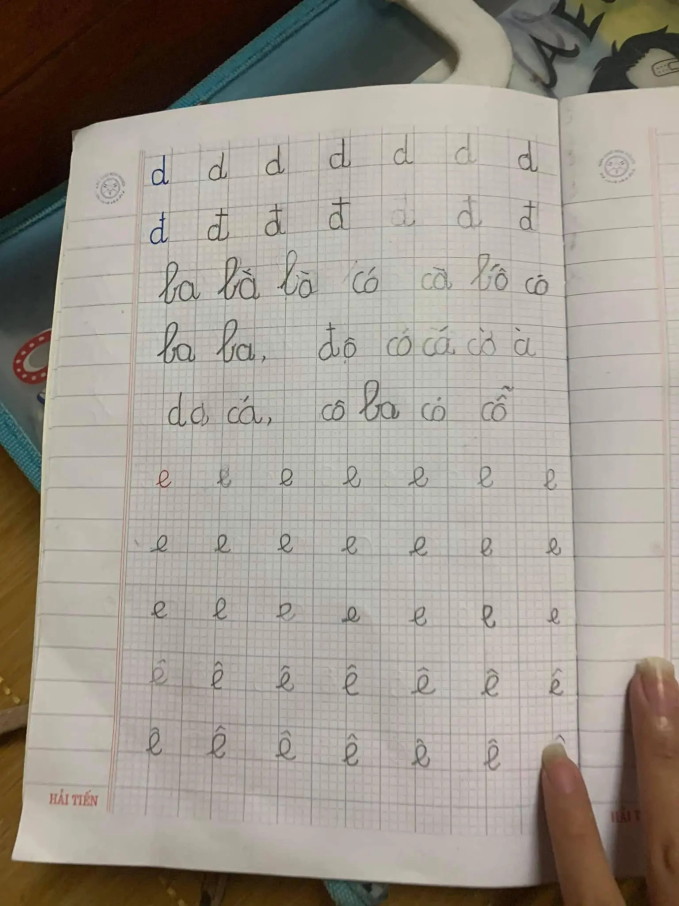 d d d d d d d
đ đ đ đ đ đ đ
ba bà bà có cà bố có
ba ba, đọ có cá cờ à
da cá, cô ba có cỗ
e e e e e e e
e e e e e e e
e e e e e e e
ê ê ê ê ê ê ê
ê ê ê ê ê ê
HẢI TIẾN